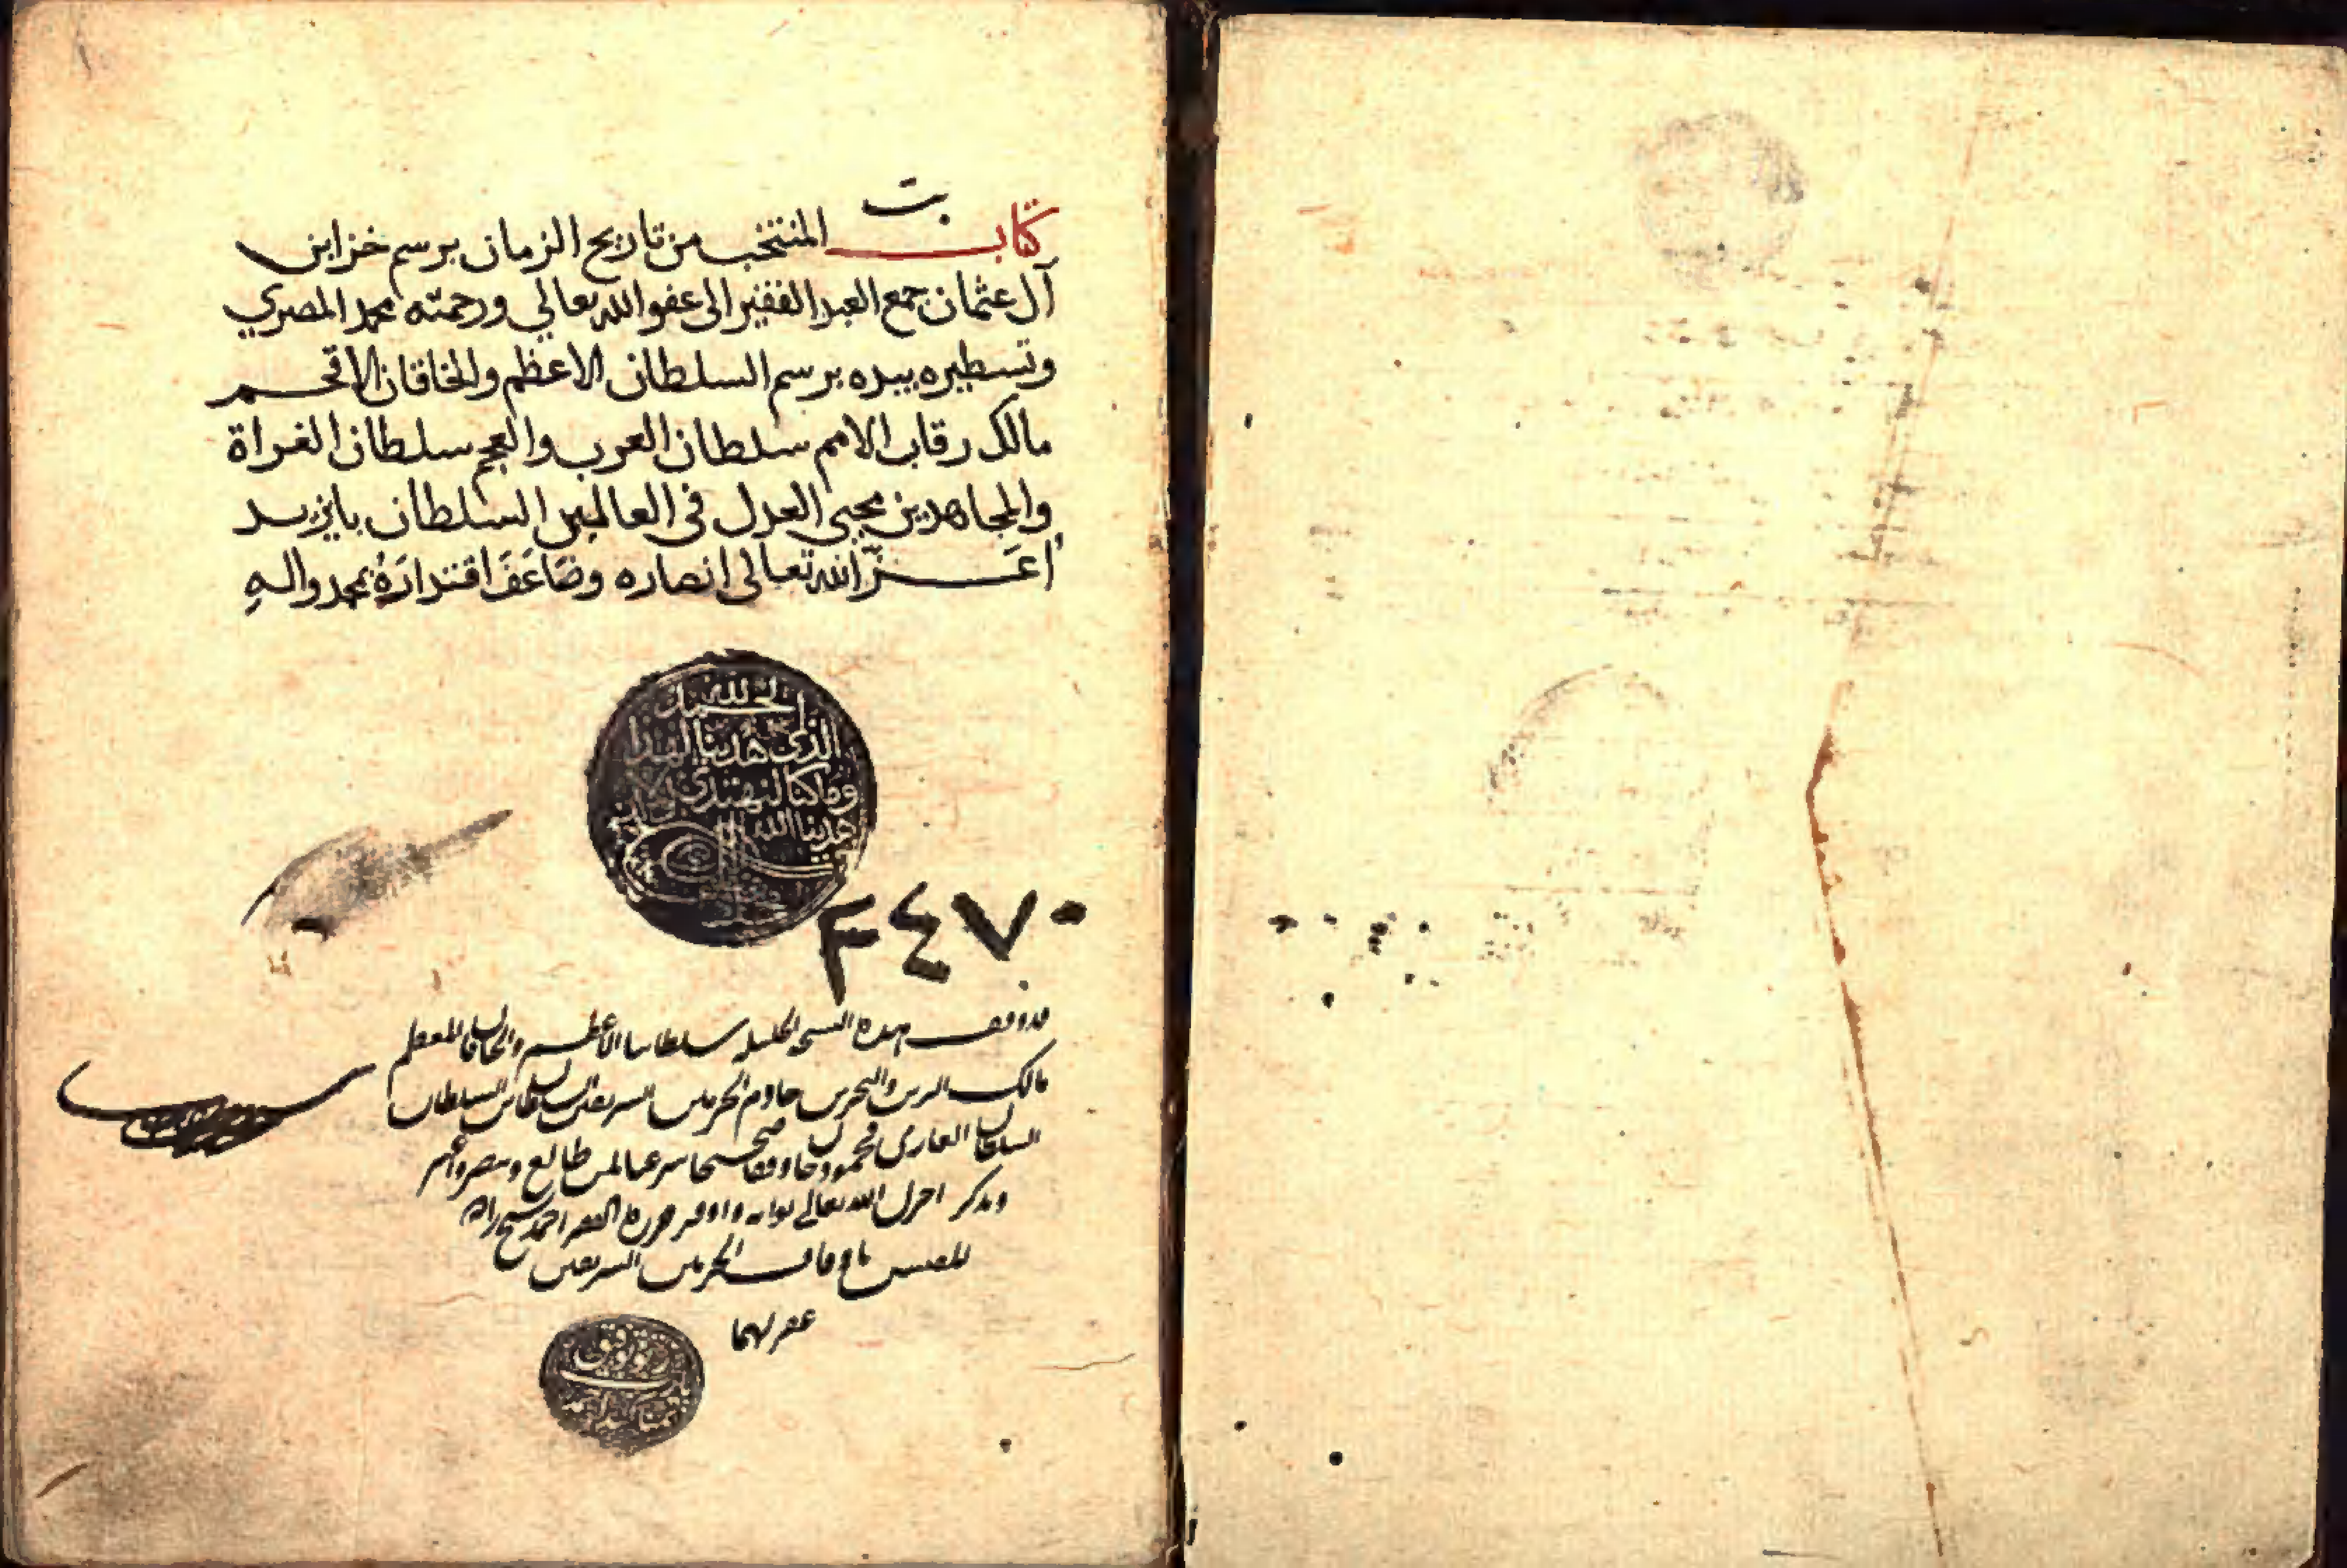 ت
كتاب المنتخب من تاريخ الزمان برسم خزاين
آل عثمان جمع العبد الفقير الى عفو الله تعالي ورحمته محمد المصري
وتسطيره بيده برسم السلطان الاعظم والخاقان الافخم
مالك رقاب الامم سلطان العرب والعجم سلطان الغزاة
والمجاهدين محيي العدل في العالمين السلطان بايزيد
اعَزّ الله تعالى انصاره وضَاعَفَ اقتدارَهُ بمحمد والهِ
الحمد لله
الذي هدينا لهذا
وما كنا لنهتدي لولا ان
هدينا الله
٣٤٧٠
قد وقف هذه النسخة الجليلة سلطاننا الأعظم والخاقان المعظم
مالك البرين والبحرين خادم الحرمين الشريفين السلطان بن السلطان
السلطان الغازي محمود خان وقفا صحيحا شرعيا لمن طالع
وذكر اجزل الله تعالى ثوابه واوفر حرره الفقير احمد شيخ زاده
المفتش باوقاف الحرمين الشريفين
غفر لهما